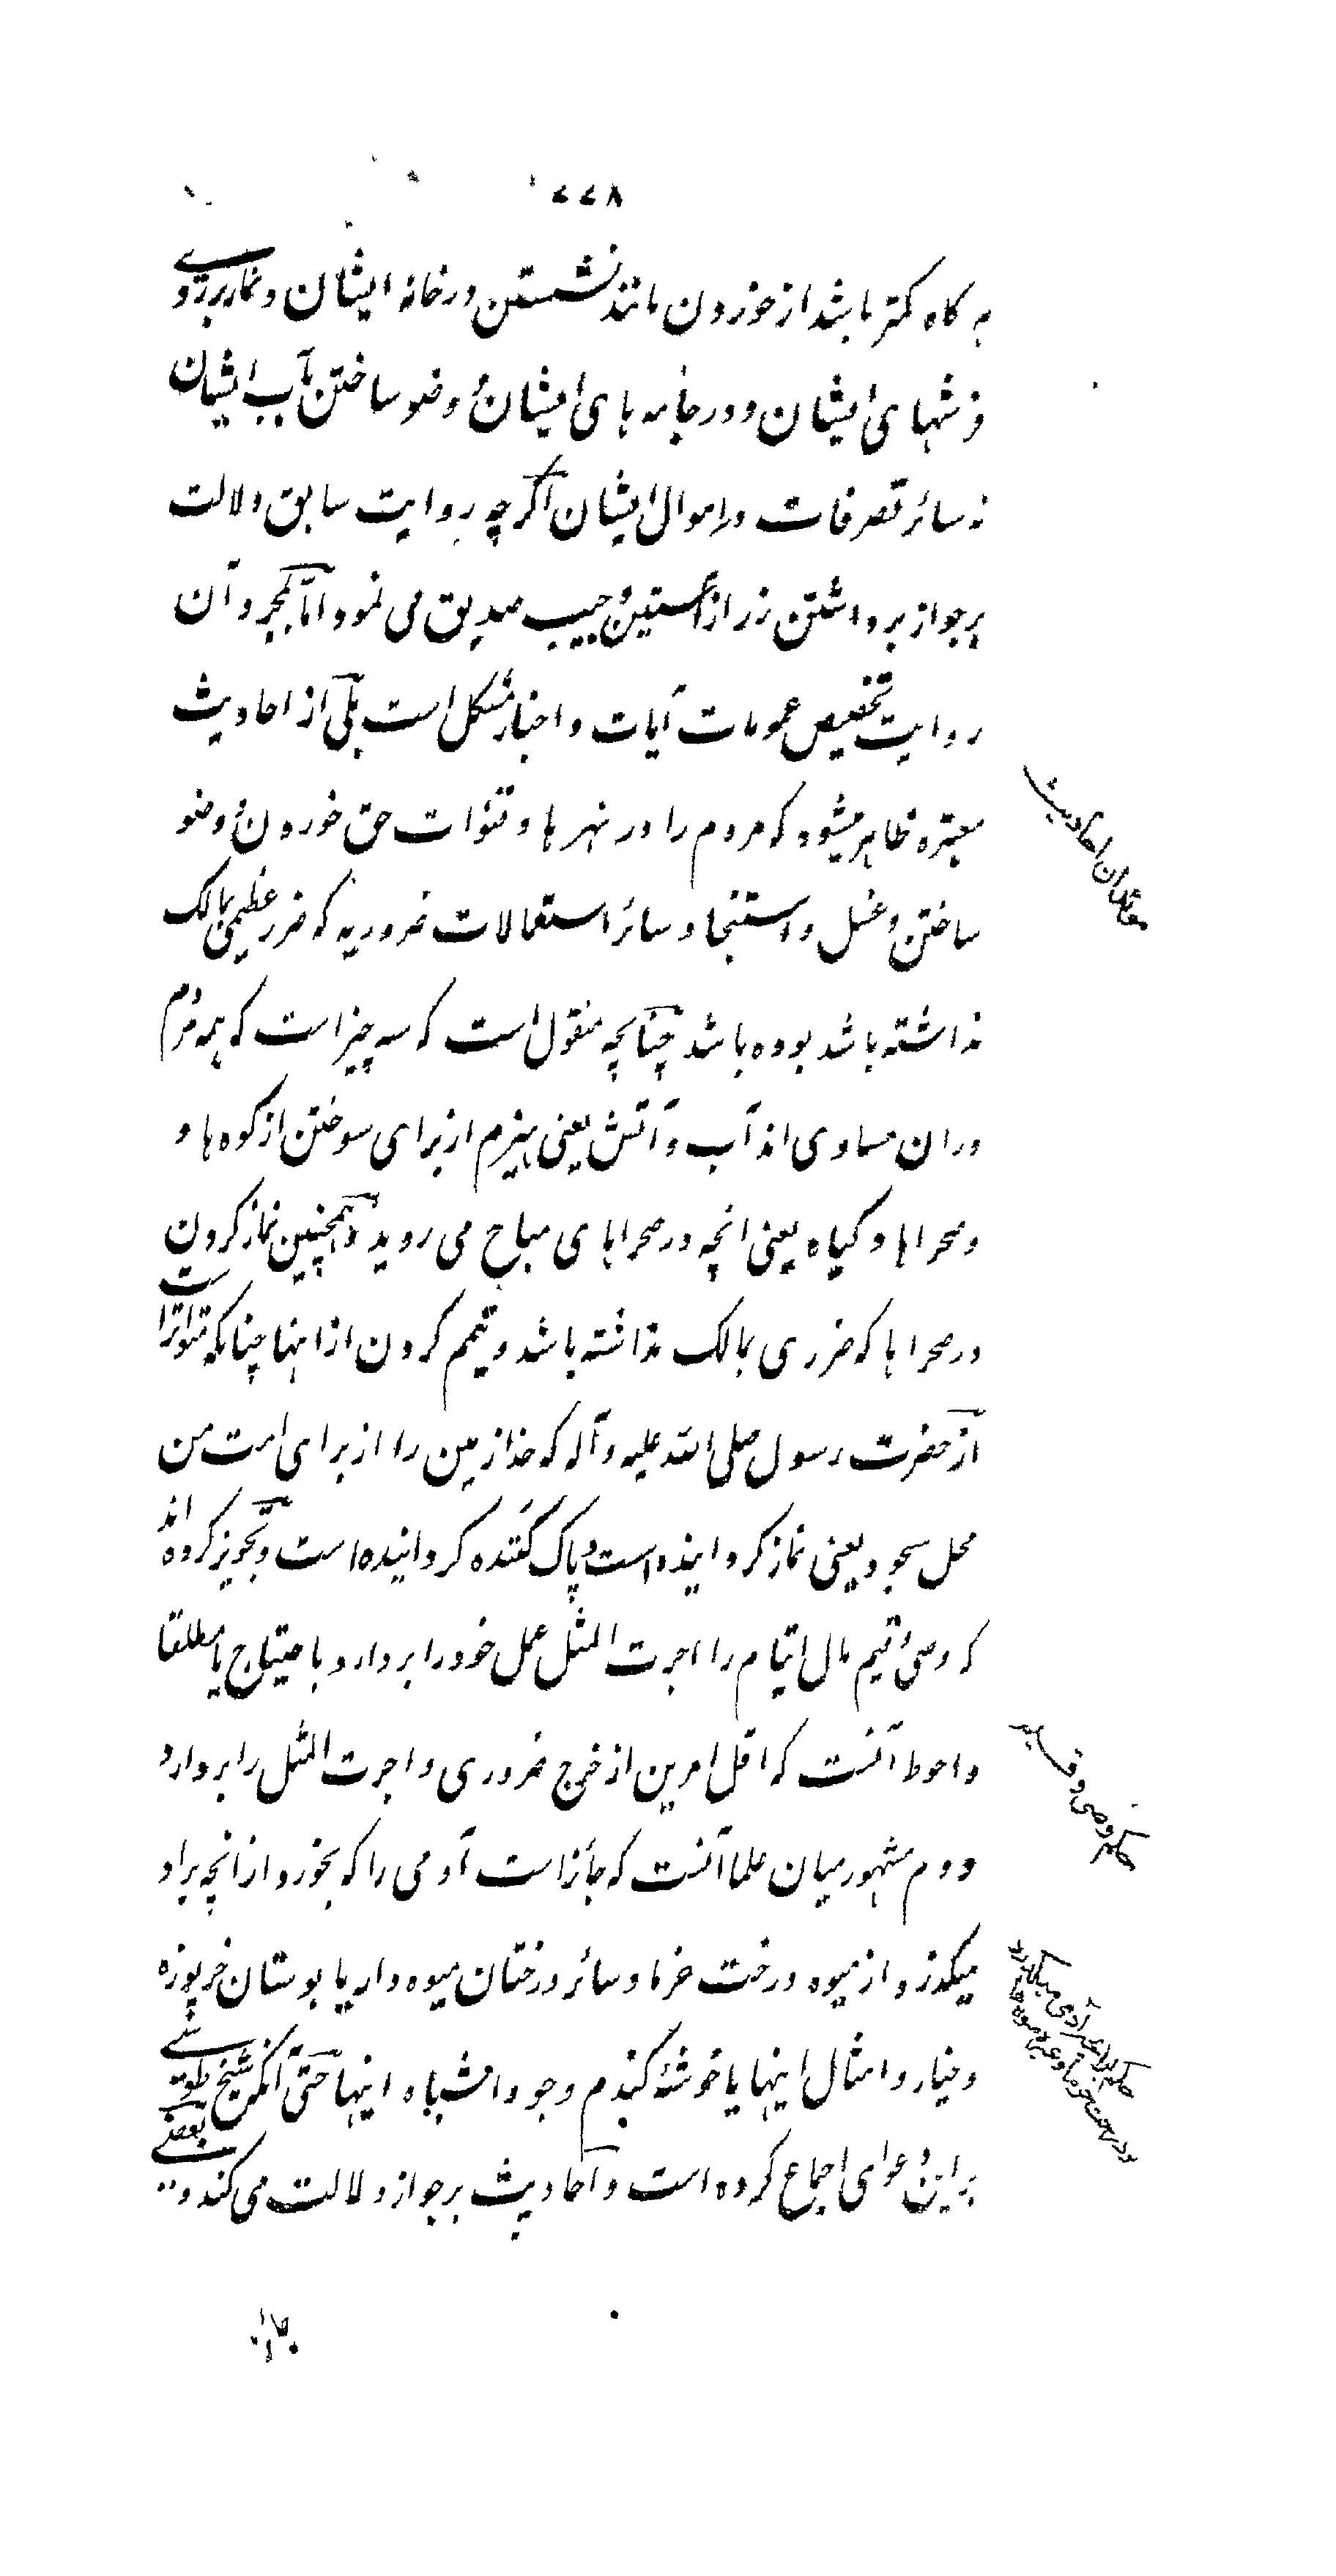 ۷۷۸
هر کاه کمتر باشد از خوردن مانند نشستن در خانه ایشان و نماز بر روی
فرشهای ایشان و در جامه های ایشان و وضو ساختن بآب ایشان
نه سائر تصرفات در اموال ایشان اگر چه روایت سابق دلالت
بر جواز برداشتن زر از آستین و جیب صدیق می نمود اما بمجرد آن
روایت تخصیص عمومات آیات و اخبار مشکل است بلی از احادیث
معتبره ظاهر میشود که مردم را در نهرها و قنوات حق خوردن و وضو
ساختن و غسل و استنجا و سائر استعمالات ضروریه که ضرر عظیمی بمالک
نداشته باشد بوده باشد چنانچه منقول است که سه چیز است که همه مردم
در ان مساوی اند آب و آتش یعنی هیزم از برای سوختن از کوه ها و
و صحراها و کیاه یعنی انچه در صحراهای مباح می روید و همچنین نماز کردن
در صحراها که ضرری بمالک نداشته باشد و تیمم کردن از اینها چنانکه متواتر است
از حضرت رسول صلی الله علیه و آله که خدا زمین را از برای امت من
محل سجود یعنی نماز کردانیده است و پاک کننده کردانیده است و تجویز کرده اند
که وصی و قیم مال ایتام را اجرت المثل عمل خود را بردارد با احتیاج یا مطلقا
و احوط آنست که اقل امرین از خرج ضروری و اجرت المثل را بردارد
دوم مشهور میان علما آنست که جائز است آدمی را که بخورد از انچه بر او
میکذرد از میوه درخت خرما و سائر درختان میوه دار یا بوستان خربوزه
و خیار و امثال اینها یا خوشهٔ کندم و جو و اشباه اینها حتی آنکه شیخ طوسی
بر این دعوای اجماع کرده است و احادیث بر جواز دلالت می کند و بعضی
حکم وصی و قیم